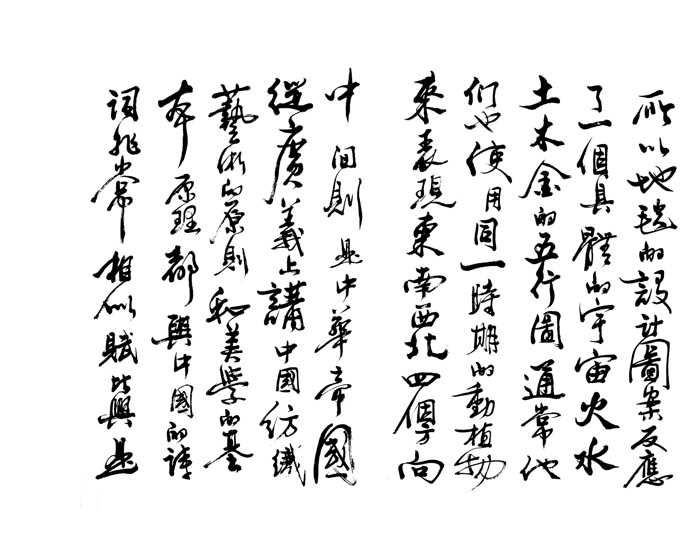 所以地毯的設計圖案反應
了一個具體的宇宙火水
土木金的五行圖通常他
們也使用同一時期的動植物
來表現東南西北四個方向
中間則是中華帝國
從廣義上講中國紡織
藝術的原則和美學的基
本原理都與中國的詩
詞非常相似賦比興是